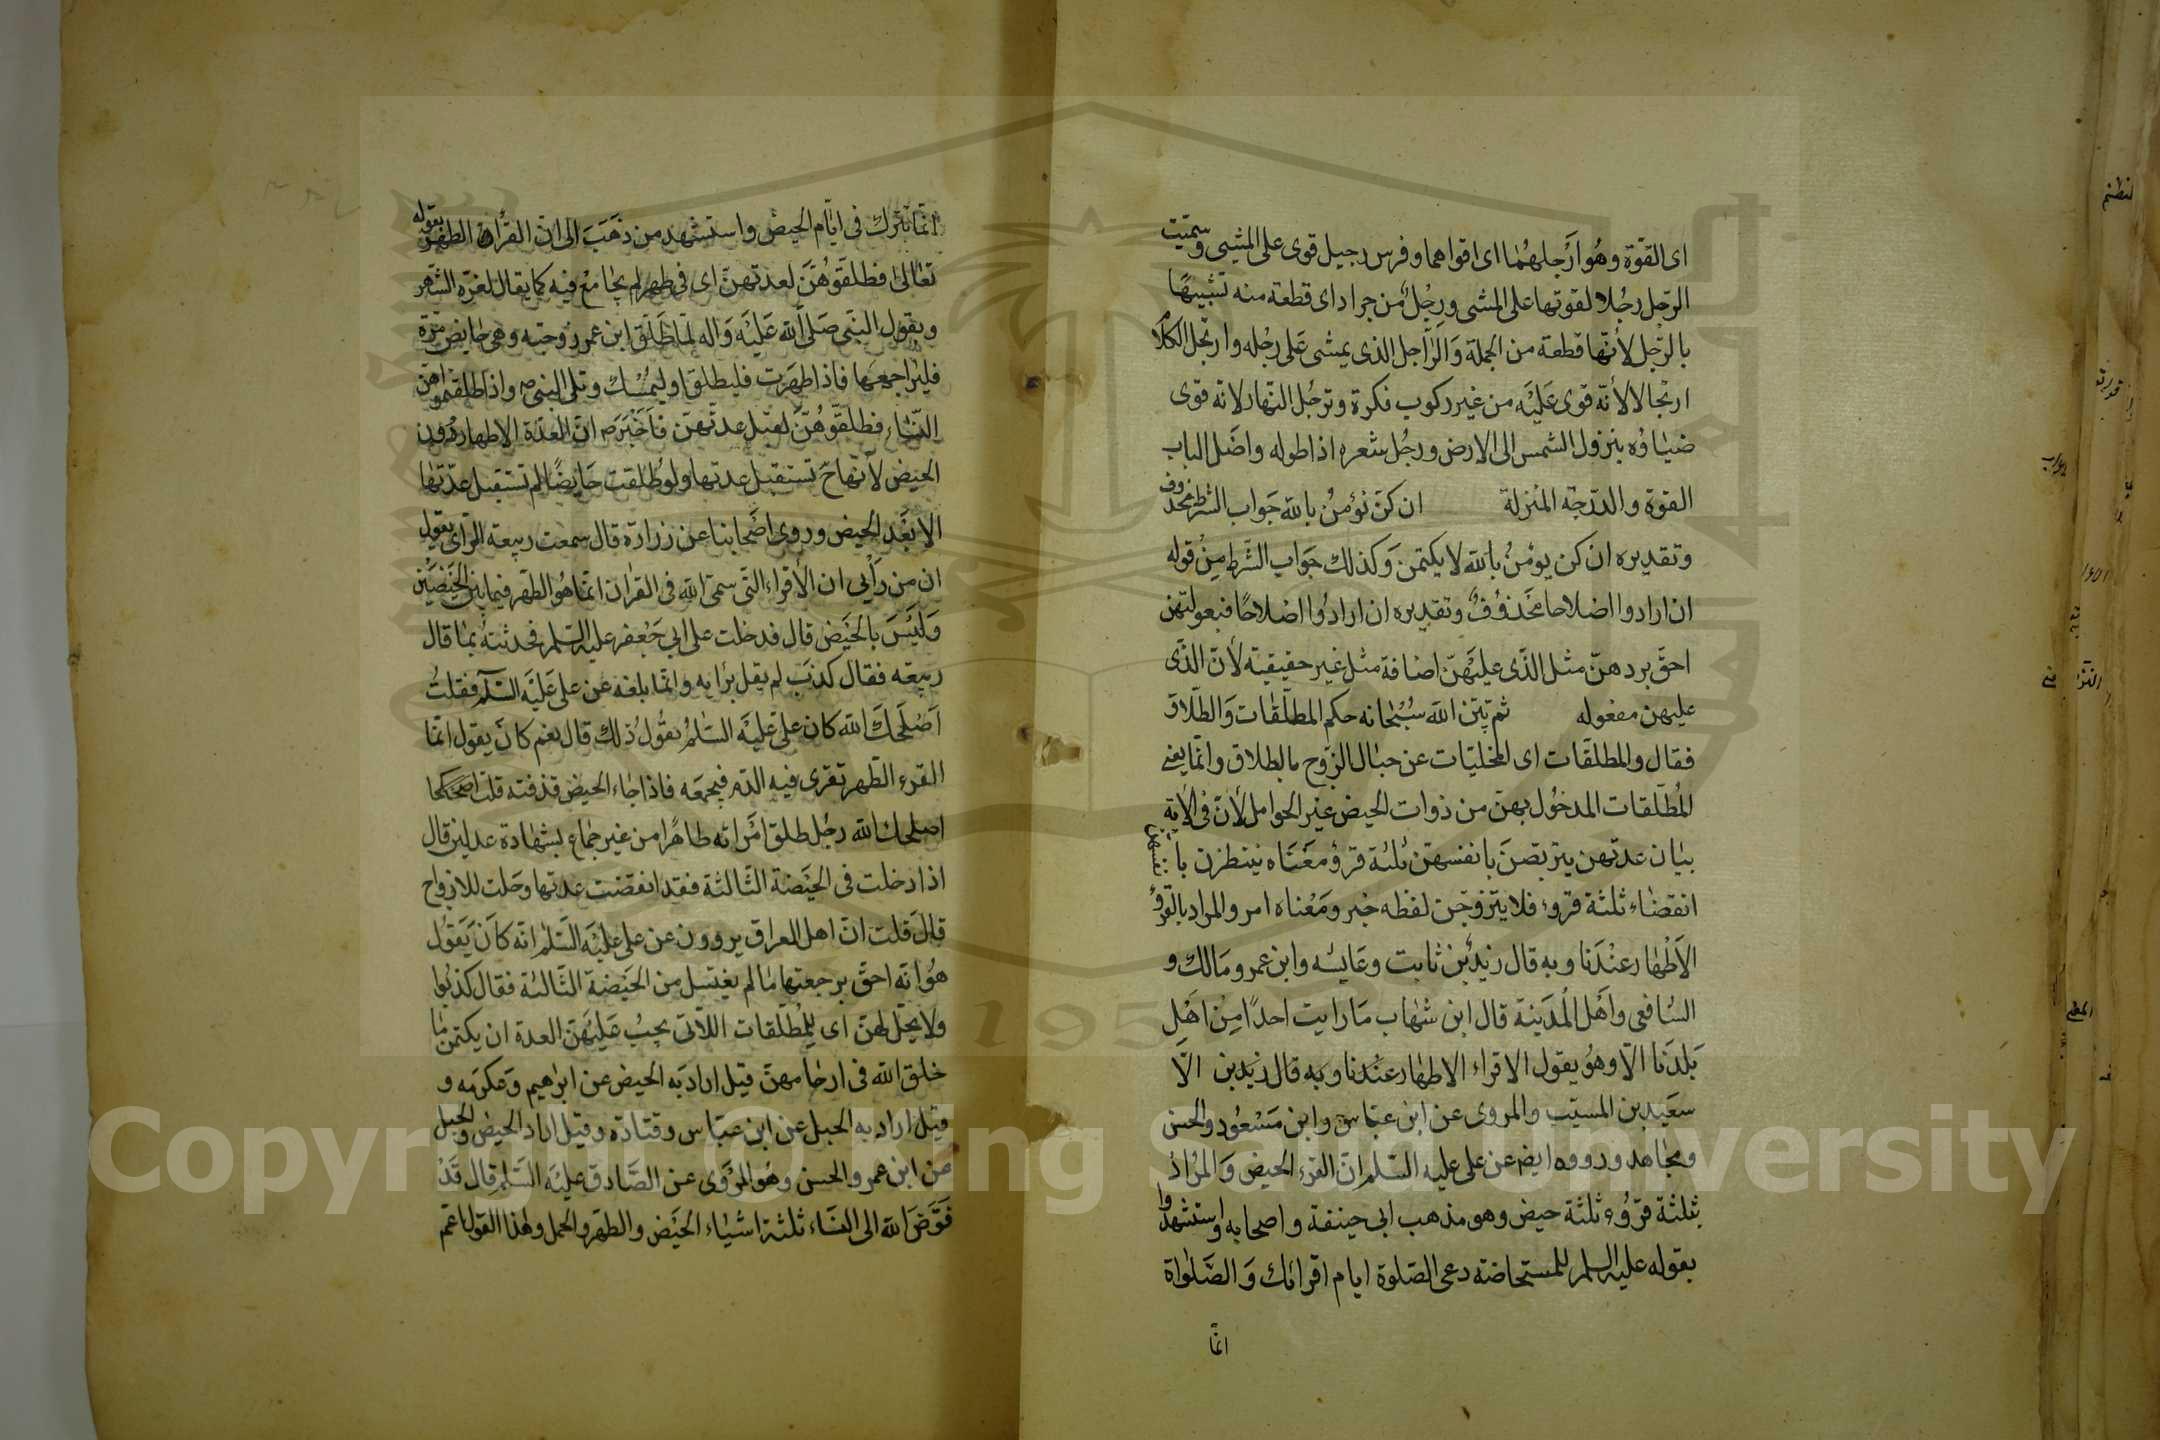 اى القوّة وهُو اَرْجلهُما اى اقواهما وفرس رجيل قوى على المشى وسمّيت
الرّجل رجُلا لقوتها على المشى ورِجْلٌ من جراد اى قطعة منه تشبيهًا
بالرّجل لأنّها قطعة من الجملة وَالرّاجل الذى يمشى عَلى رجْله وارتجل الكلام
ارتجالا لأنّه قوى عَليْه من غير ركوب فكرة وترجّل النّهار لانّه قوى
ضياؤه بنزول الشمس الى الارض ورجّل شعره اذا طوله واصَل الباب
القوة والدّرجة المنزلة ان كنّ يؤمنّ بالله جَواب الشرط محذوف
وتقديره ان كن يومنّ بالله لا يكتمن وَكذلك جَواب الشّرط مِنْ قوله
ان ارادوا اصلاحا محَذوُفٌ وتقديره ان ارادُوا اصْلاحًا فبعولتهن
احقّ بردهنّ مثل الذّى عليَهنّ اضافة مثل غير حقيقية لأنّ الذّى
عليهن مفعوله ثم بيّن الله سُبْحانه حكم المطلّقات وَالطّلاق
فقال والمطلقّات اى المخليّات عن حبال الزّوج بالطلاق وانّما يعنى
المُطلّقات المدخُول بهنّ من ذوات الحيض غير الحوامل لأنّ فى الآية
بيان عدتهن يتربّصنَ بانفسهّن ثلثة قرؤ معَناه ينتظرن بانفسهن
انقضاء ثلثة قروء فلا يتزوجّن لفظه خبر ومَعْناه امر والمراد بالقرؤ
الأطْهار عنْدَنا وبه قال زيْد بن ثابت وعَايشه وابن عمر ومَالك و
الشافعى واَهْل المَدينة قال ابن شهاب مَا رايت احدًا مِنْ اهْل
بَلدَنا الّا وهُو يقول الاقراء الاطهار عنْدنا وبه قال زيدبن الّا
سعَيد بن المسيّب والمروى عن ابن عبّاس وابن مَسْعُود والحسن
ومجاهد ورووه ايضا عن على عليه السّلم انّ القرء الحيض وَالمرُاد
بثلثة قرُوء ثلثة حيض وهو مذهب ابى حنيفة واصحابه واستشهدوا
بقوله عليه السلم للمستحاضة دعى الصّلوة ايام اقرائك وَالصَّلوٰاة
انما
انّما تترك فى ايّام الحيض واستشهد من ذهَبَ الى انّ القرأ الطهر بقوله
تعَالىٰ فطلقّوُهُنّ لعدتهنّ اى فى طهر لم يجامعْ فيه كما يقال لغرّه الشّهر
وبقول النّبى صَلى الله عَليَه وَاله لمّا طَلّق ابن عمر زوجته وهى حايض مرّه
فليراجعهَا فاذا طهرت فليطلق او ليمسْك وتلى النبىص واذا طلقتموا
النّساء فطلقّوهُنّ لقبل عدتّهن فاَخْبَرص انّ العدّة الاطهار دون
الحيض لأنّهاح تستقبل عدتها ولو طُلّقت حَايضًا لم تستقبل عدّتها
الا بعَد الحيض وروى اصَحابنا عن زرارة قال سمعت ربيعة الرّاى يقول
ان من رَأيى ان الأقراء التّى سمّى الله فى القران انّما هُو الطّهر فيما بيَن الحَيْضتيْن
وَليَسَ بالحيَض قال فدخلت على ابى جَعْفر عليه السّلم فحدثته بمٰا قال
ربيعه فقال كذَب لم يقل برأيه وانّما بلغه عن على عَليَه السّلم فقلتُ
اَصْلَحَك الله كان علىّ عليَه السّلمُ يقُولُ ذلك قال نعم كانَ يقول انّما
القرء الطّهر تقرى فيه الدّم فيجمعَه فاذا جاء الحيض قذفته قلت
اصلحك الله رجُل طلق امَراته طاهرًا من غير جماع بشهادة عدلين قال
اذا دخلت فى الحيَضة الثّالثة فقد انقضت عدتها وحَلت للازواج
قالَ قلت انّ اهل العراق يروون عن على عليَه السّلم انّه كانَ يَقوُل
هُو انّه احقّ برجعتها مٰا لم يغتسل من الحَيضة الثّالثة فقال كذبُوا
ولا يحّل لهنّ اى للمُطلّقات اللّاتى يجبُ عَليهَنّ العدة ان يكتمن مٰا
خلق الله فى ارحامهنّ قيل اراد به الحيض عن ابرٰهيم وَعكرمه و
قيل اراد به الحبل عن ابن عبّاس وقتادة وقيل اراد الحيض والحبل
عن ابن عمر والحسن وهُو المرْوَى عن الصّادق عليَه السّلم قال قَدْ
فَوّضَ الله الى النسَاء ثلثة اشياء الحيَض والطهر والحمل وهٰذا القول اعّم